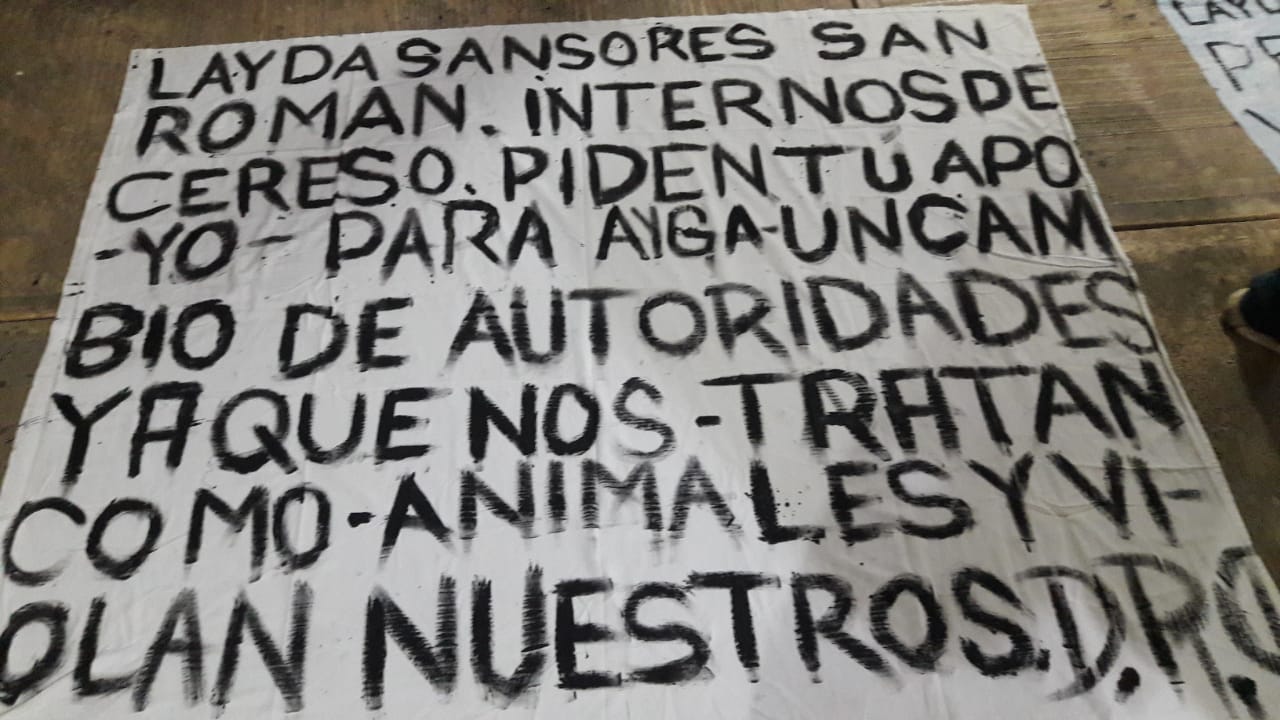 LAYDA SANSORES SAN
ROMAN. INTERNOS DE
CERESO. PIDEN TÚ APO
-YO- PARA AYGA-UN CAM
BIO DE AUTORIDADES
YA QUE NOS-TRATAN
COMO-ANIMALES Y VI-
OLAN NUESTROS.D.R.O